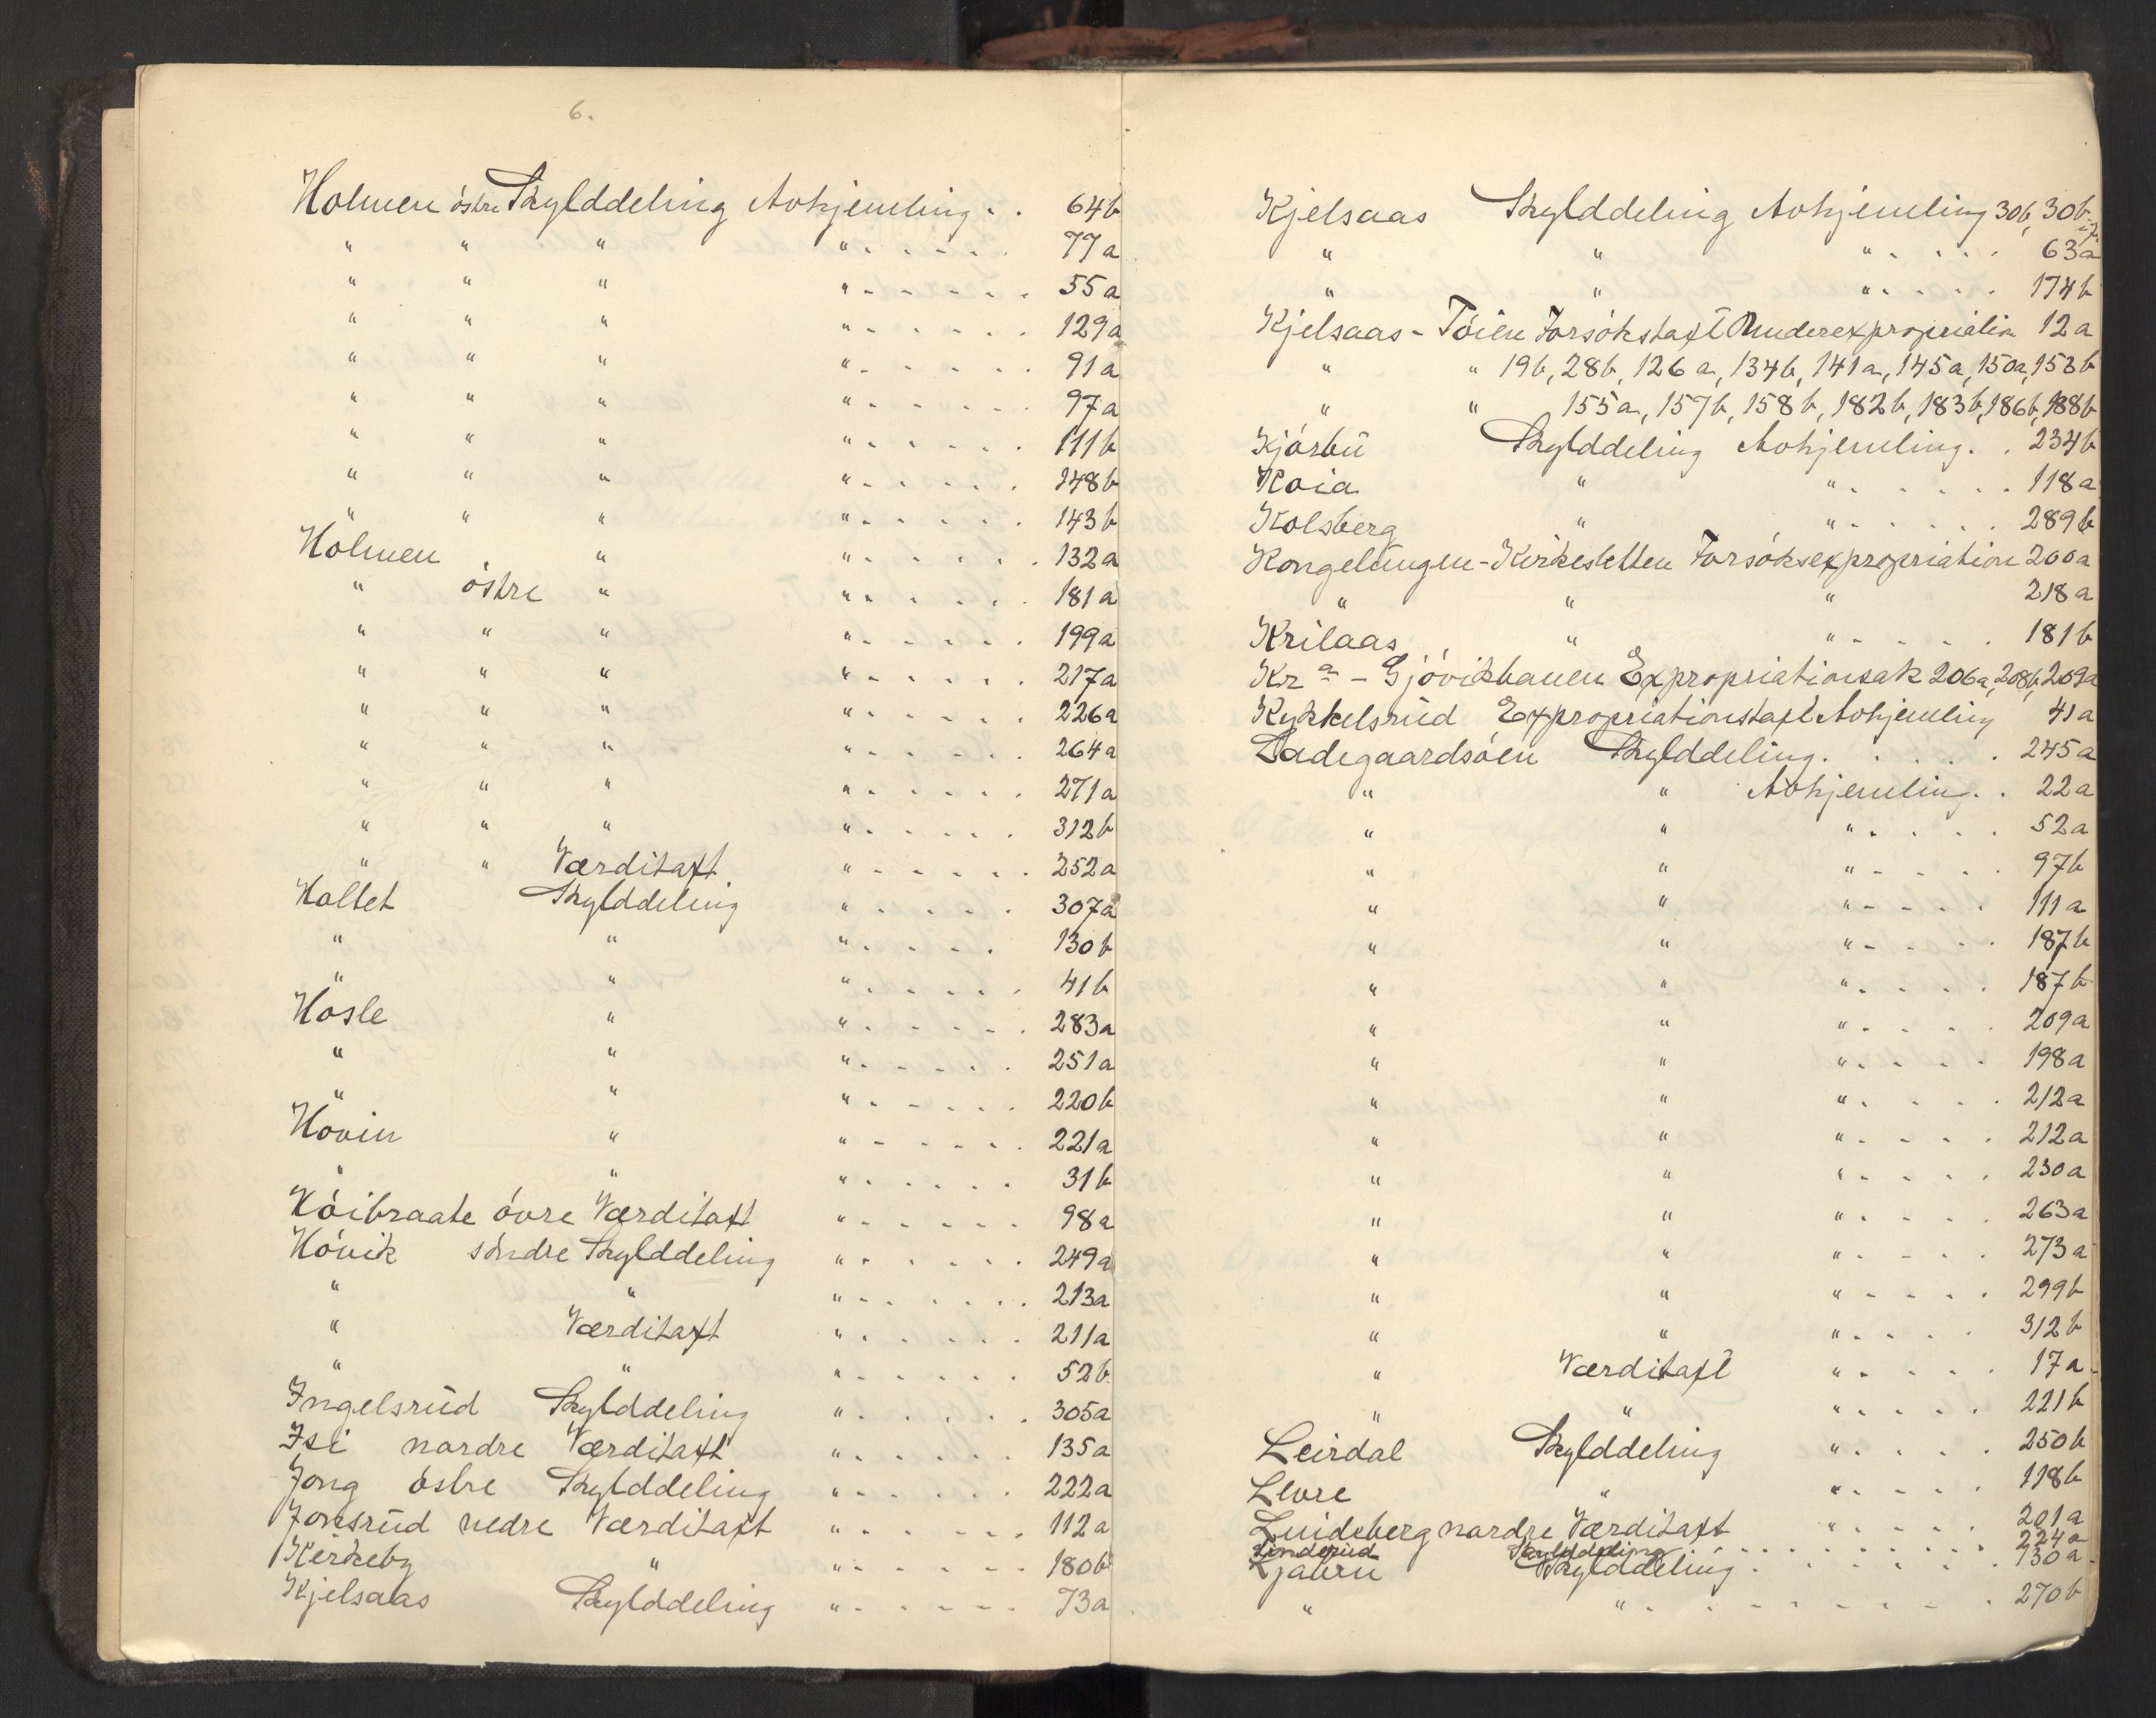 6.
Holmen östre Skylddeling Avhjemling . . 64b
" " " " . . . . . 77a
" " " " . . . . . . 55a
" " " " . . . . . . 129a
" " " " . . . . . . 91a
" " " " . . . . . . 97a
" " " " . . . . . . 111b
" " " " . . . . . . 148b
" " " " . . . . . . 143b
Holmen " " . . . . . . 132a
" östre " " . . . . . . 181a
" " " " . . . . . 199a
" " " " . . . . . . 217a
" " " " . . . . . . 226a
" " " " . . . . . . 264a
" " " " . . . . . . 271a
" " " " . . . . . . 312b
" " Værditaxt " . . . . . . 252a
Holtet Skylddeling " . . . . . 307a
" " " . . . . . 130b
" " " . . . . . . 41b
Hosle " " . . . . . . 283a
" " " . . . . . . 251a
" " " . . . . . . 220b
Hovin " " . . . . . . 221a
" " " . . . . . . 31b
Höibraate övre Værditaxt " . . . . . . 98a
Hövik söndre Skylddeling " . . . . . . 249a
" " " . . . . . . 213a
" Værditaxt " . . . . . . 211a
" " " . . . . . . 52b
Ingelsrud Skylddeling " . . . . . . 305a
Isi nordre Værditaxt " . . . . . . 135a
Jong östre Skylddeling " . . . . . . 222a
Jonsrud nedre Værditaxt " . . . . . . 112a
Kirkeby " " . . . . . . 180b
Kjelsaas Skylddeling " . . . . . . 73a
Kjelsaas Skylddeling Avhjemling 30b, 30b
" " " . . . . . 63a
" " " . . . . . 174b
Kjelsaas - Töien Forsökstaxt Underexpropriation 12a
" " 19b, 28b, 126a, 134b, 141a, 145a, 150a, 153b
" " 155a, 157b, 158b, 182b, 183b, 186b, 188b
Kjörbu Skylddeling Avhjemling . . 234b
Koia " " . . . . . . 118a
Kolsberg " " . . . . . . 289b
Kongelungen - Kirkesletten Forsöksexpropriation 200a
" " " 218a
Krilaas " " . . . . . 181b
Kra - Gjövikbanen Expropriationsak 206a, 208b, 209a
Kykkelsrud Expropriationstaxt Avhjemling 41a
Ladegaardsöen Skylddeling . . . . . 245a
" " Avhjemling . . 22a
" " " . . . . . 52a
" " " . . . . . 97b
" " " . . . . . 111a
" " " . . . . . 187b
" " " . . . . . 187b
" " " . . . . . 209a
" " " . . . . . 198a
" " " . . . . . 212a
" " " . . . . . 212a
" " " . . . . . 230a
" " " . . . . . 263a
" " " . . . . . 273a
" " " . . . . . 299b
" " " . . . . . 312b
" Værditaxt " . . . . . 17a
" " " . . . . . 221b
Leirdal Skylddeling " . . . . . 250b
Levre " " . . . . . 118b
Lindeberg nordre Værditaxt " . . . . . 201a
Linderud Skylddeling . . . . . . . . . . 224a
Ljabru Skylddeling . . . . . . . 130a
" " . . . . . . . . . 270b